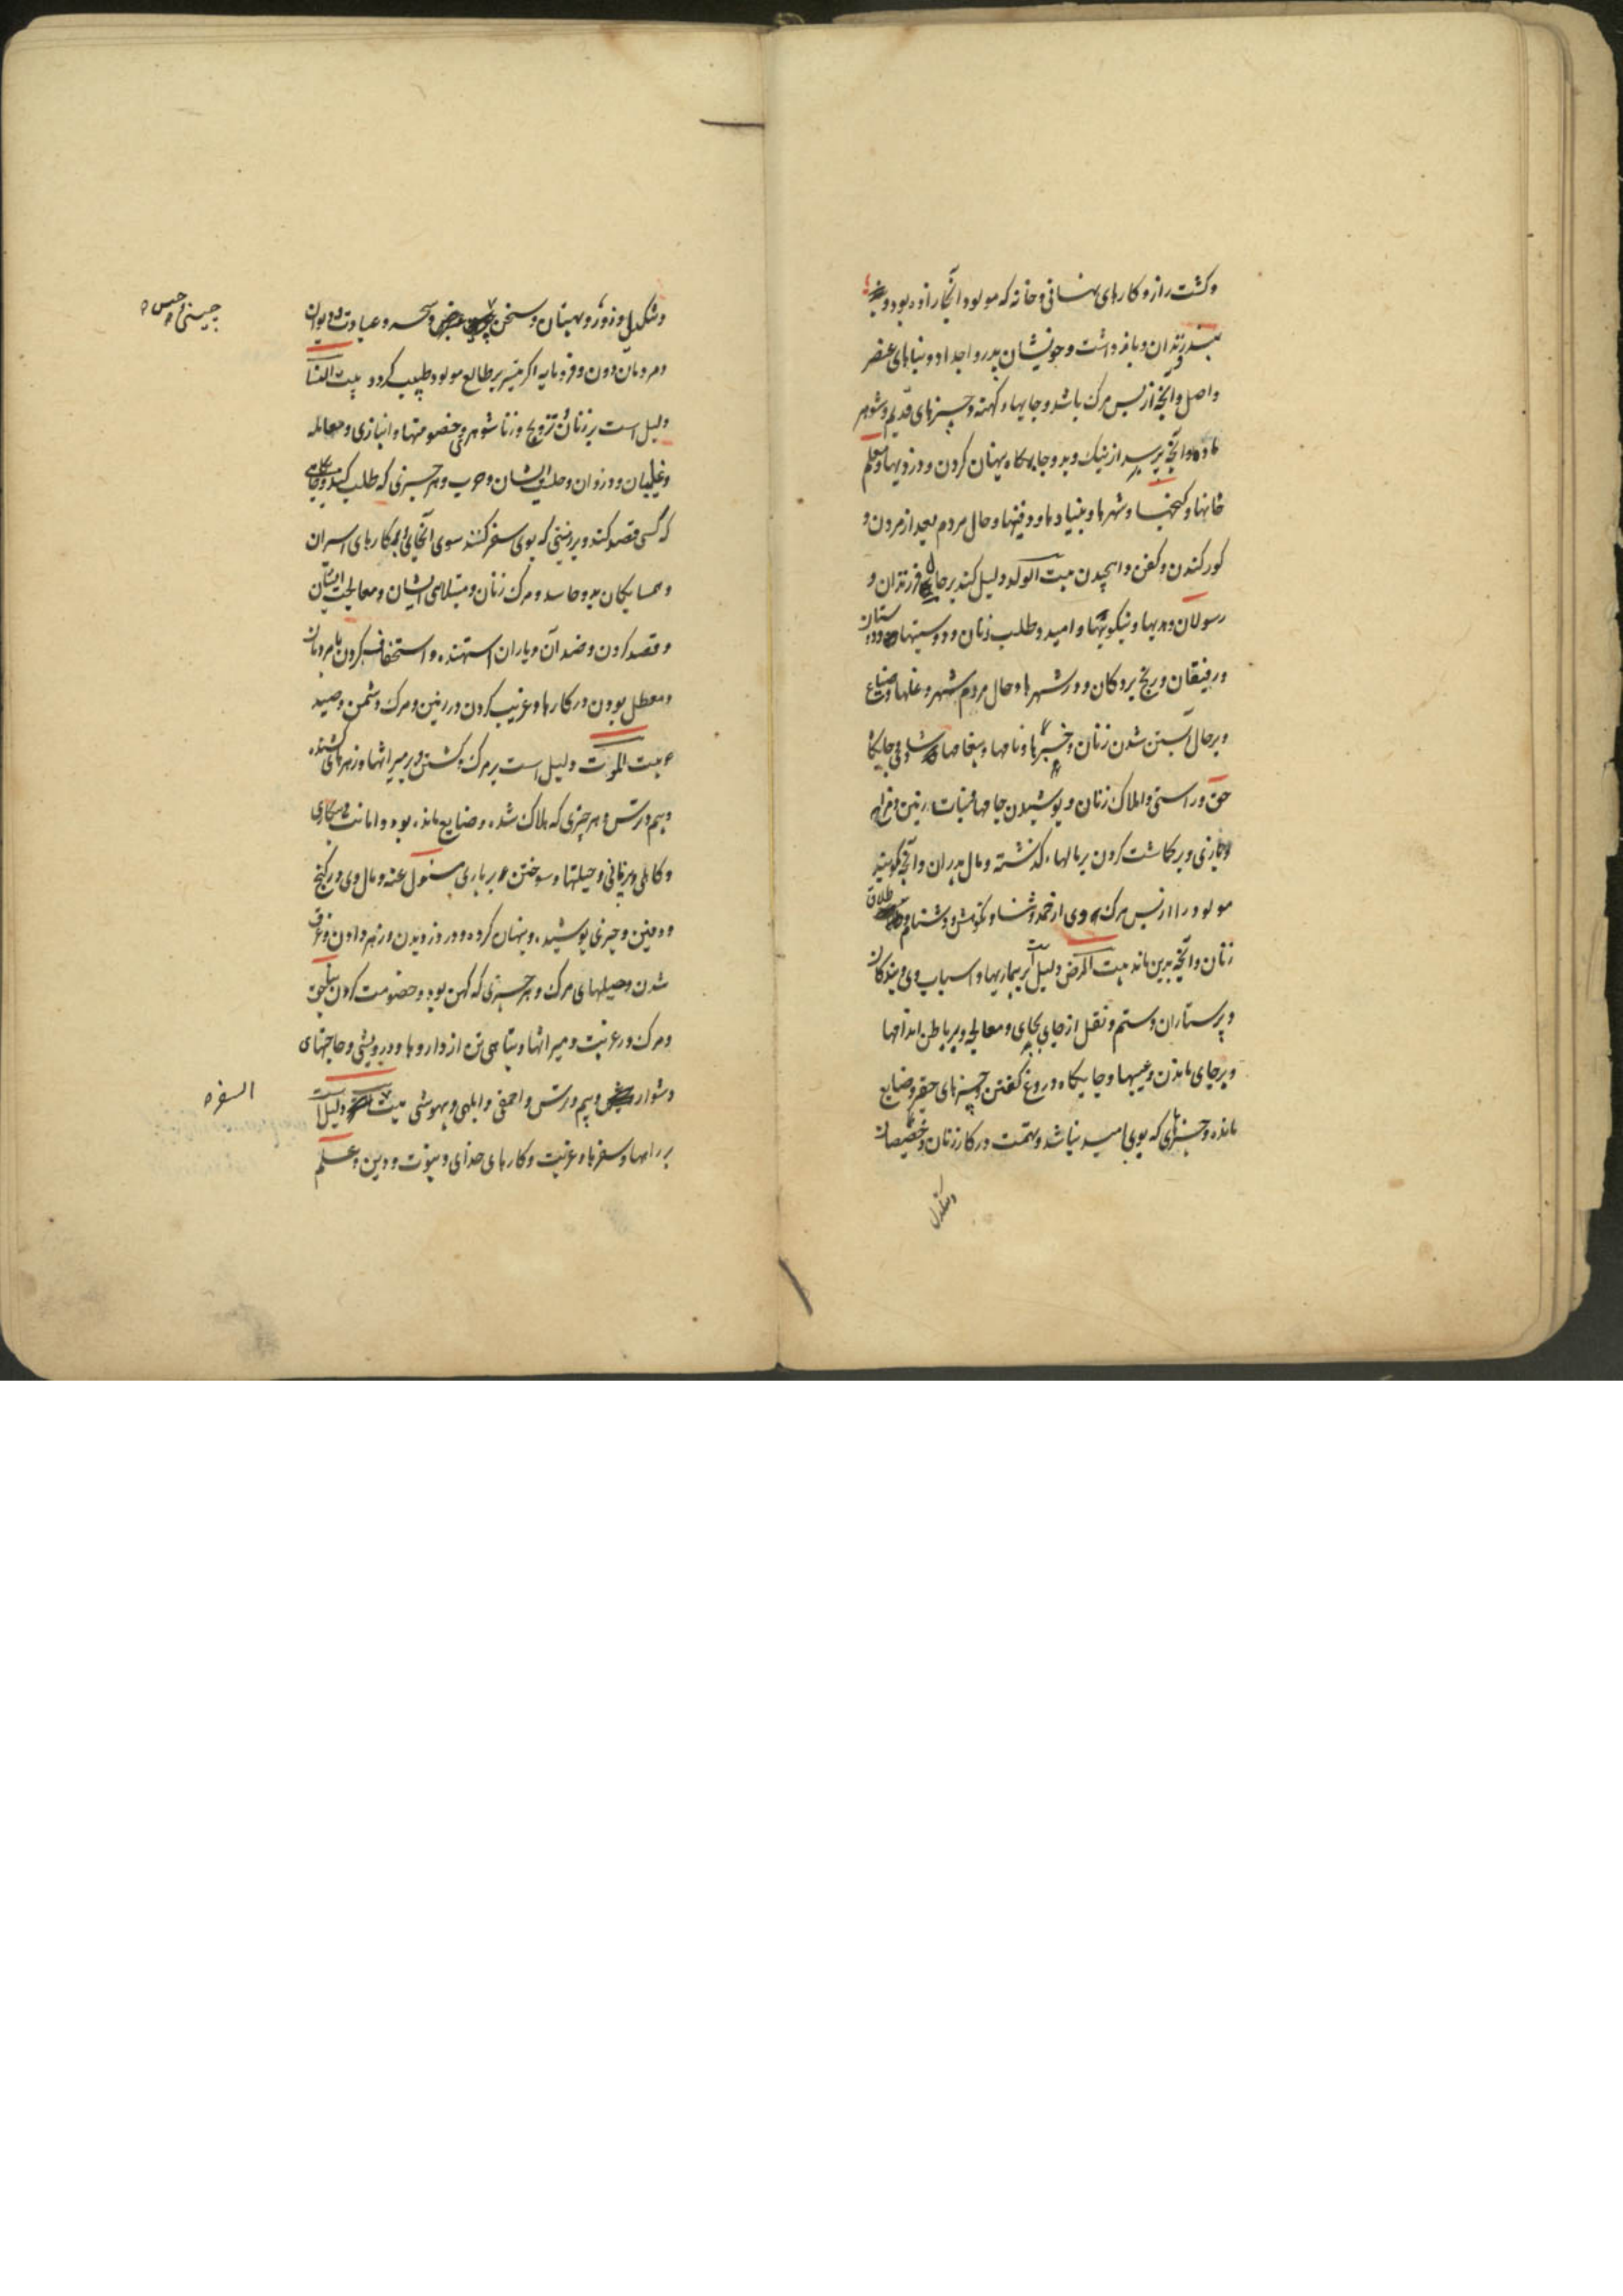 و کشت راز و کارهای نهانی و خانه که مولود آنجا زاده بود و
بند و زندان و بازداشت و خویشان پدر و اجداد و بنیاهای عنصر
و اصل و آنچه از پس مرگ باشد و جایهاء کهنه و چیزهای قدیم و شوهر
مادر و آنچه پرسید از نیک و بد و جایکاه پنهان کردن و دزدیها و معلم
خانها و کنجها و شهرها و بنیادها و دفینها و حال مردم بعد از مردن و
کور کندن و کفن و اهچیدن بیت الولد دلیل کند بر جای فرزندان و
رسولان و هدیها و نیکوییها و امید و طلب زنان و دوستیها
و رفیقان و رنج بردکان و در شهرها و حال مردم شهر و غلها و ضیاع
و بر حال آبستن شدن زنان و خبرها و نامها و
حق و راستی و املاک زنان و پوشیدن جامها
و بر کاشت کردن بر مالهاء گذشته و مال پدران و آنچه گویند
مولود را از پس مرگ وی از حمد و ثنا و نکوهش و دشنام و طلاق
زنان و آنچه بدین ماند بیت المرض دلیل است بر بیماریها و اسباب وی و بندکان
و پرستاران و ستم و نقل از جای بجای و معالجه و بر باطن اندامها
و بر جای ماندن و عیبها و جایکاه دروغ گفتن و چیزهای حقیر و ضایع
مانده و چیزهای که بوی امید نباشد و تهمت در کار زنان و خصیصان
و سنکدل
و سنکدل و زور و بهتان و سخن چینی و سحر و عبادت دیوان
چینی و حبس
و مردمان دون و فرومایه اکر بر طالع مولود کردد بیت النسا
دلیل است بر زنان و تزویج و زناشوهری و خصومتها و انبازی و معامله
و غایبان و دزدان و حرب و هر چیزی که طلب کند و جایکاهی
که کسی قصد کند و بر زمینی که بوی سفر کنند سوی آنجای و کارهای اسیران
و همسایکان بد و حاسد و مرک زنان و مبتلاهی ایشان و معالجت ایشان
و قصد کردن و ضد آن و یاران و استخفاف کردن با مردمان
و معطل بودن در کارها و غریب کردن در زمین و مرک دشمن و صید
بیت الموت دلیل است بر مرک و کشتن و بر میراثها و زهرهای کشنده
و بیم و ترس و هر چیزی که هلاک شده و ضایع مانده بود و امانت و بیکاری
و کاهلی و حیلتها و سوختن و بر یاری مسئول عنه و مال وی در کنج
و دفین و چیزی پوشیده و پنهان کرده و در دزدیدن و زهر دادن و غرق
شدن و حیلهای مرک و هر چیزی که کهن بود و خصومت کردن
و مرک در غربت و میراثها و تباهی تن از داروها و درویشی و حاجتهای
دشوار و بیم و ترس و احمقی و ابلهی و بیهوشی بیت دلیل است
السفر
بر راهها و سفرها و غربت و کارهای خدای و نبوت و دین و علم